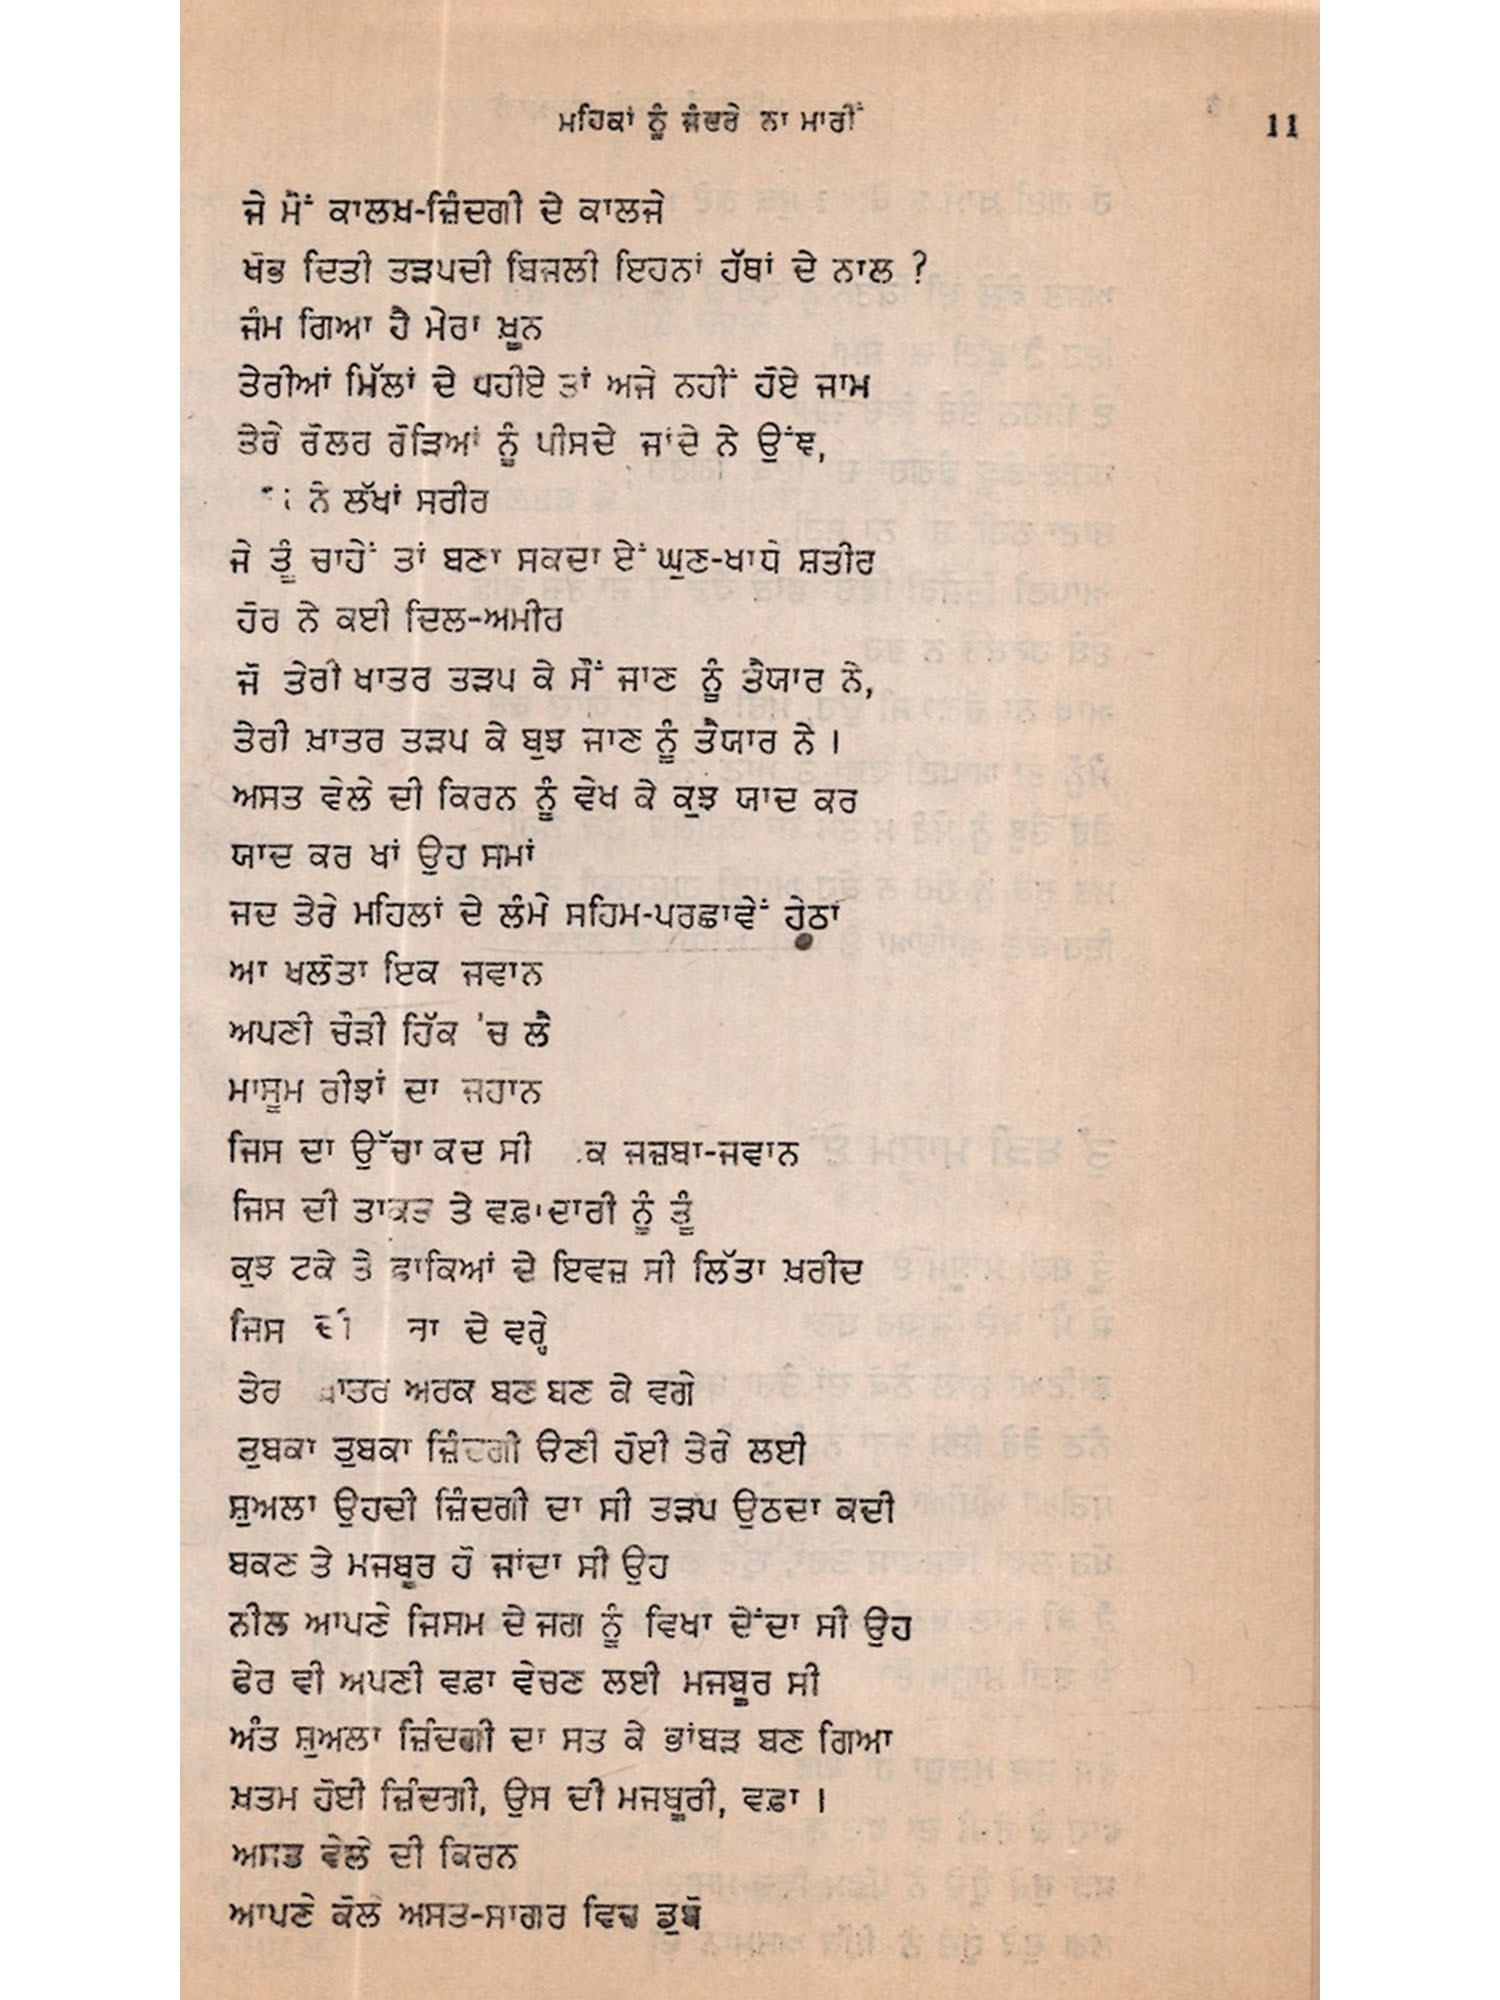 ਮਹਿਕਾਂ ਨੂੰ ਜੰਦਰੇ ਨਾ ਮਾਰੀਂ 11
ਜੇ ਮੈਂ ਕਾਲਖ਼-ਜ਼ਿੰਦਗੀ ਦੇ ਕਾਲਜੇ
ਖੋਭ ਦਿਤੀ ਤੜਪਦੀ ਬਿਜਲੀ ਇਹਨਾਂ ਹੱਥਾਂ ਦੇ ਨਾਲ ?
ਜੰਮ ਗਿਆ ਹੈ ਮੇਰਾ ਖ਼ੂਨ
ਤੇਰੀਆਂ ਮਿੱਲਾਂ ਦੇ ਪਹੀਏ ਤਾਂ ਅਜੇ ਨਹੀਂ ਹੋਏ ਜਾਮ
ਤੇਰੇ ਰੋਲਰ ਰੋੜਿਆਂ ਨੂੰ ਪੀਸਦੇ ਜਾਂਦੇ ਨੇ ਉਂਞ,
ਨੇ ਲੱਖਾਂ ਸਰੀਰ
ਜੇ ਤੂੰ ਚਾਹੇਂ ਤਾਂ ਬਣਾ ਸਕਦਾ ਏਂ ਘੁਣ-ਖਾਧੇ ਸ਼ਤੀਰ
ਹੋਰ ਨੇ ਕਈ ਦਿਲ-ਅਮੀਰ
ਜੋ ਤੇਰੀ ਖਾਤਰ ਤੜਪ ਕੇ ਸੌਂ ਜਾਣ ਨੂੰ ਤੈਯਾਰ ਨੇ,
ਤੇਰੀ ਖ਼ਾਤਰ ਤੜਪ ਕੇ ਬੁਝ ਜਾਣ ਨੂੰ ਤੈਯਾਰ ਨੇ ।
ਅਸਤ ਵੇਲੇ ਦੀ ਕਿਰਨ ਨੂੰ ਵੇਖ ਕੇ ਕੁਝ ਯਾਦ ਕਰ
ਯਾਦ ਕਰ ਖਾਂ ਉਹ ਸਮਾਂ
ਜਦ ਤੇਰੇ ਮਹਿਲਾਂ ਦੇ ਲੰਮੇ ਸਹਿਮ-ਪਰਛਾਵੇਂ ਹੇਠਾਂ
ਆ ਖਲੋਤਾ ਇਕ ਜਵਾਨ
ਅਪਣੀ ਚੌੜੀ ਹਿੱਕ 'ਚ ਲੈ
ਮਾਸੂਮ ਰੀਝਾਂ ਦਾ ਜਹਾਨ
ਜਿਸ ਦਾ ਉੱਚਾ ਕਦ ਸੀ ਜਜ਼ਬਾ-ਜਵਾਨ
ਜਿਸ ਦੀ ਤਾਕਤ ਤੇ ਵਫ਼ਾਦਾਰੀ ਨੂੰ ਤੂੰ
ਕੁਝ ਟਕੇ ਤੇ ਫਾਕਿਆਂ ਦੇ ਇਵਜ਼ ਸੀ ਲਿੱਤਾ ਖ਼ਰੀਦ
ਜਿਸ ਦੀ ਦੇ ਵਰ੍ਹੇ
ਅਰਕ ਬਣ ਬਣ ਕੇ ਵਗੇ
ਤੁਬਕਾ ਤੁਬਕਾ ਜ਼ਿੰਦਗੀ ਊਣੀ ਹੋਈ ਤੇਰੇ ਲਈ
ਸ਼ੁਅਲਾ ਉਹਦੀ ਜ਼ਿੰਦਗੀ ਦਾ ਸੀ ਤੜਪ ਉਠਦਾ ਕਦੀ
ਬਕਣ ਤੇ ਮਜਬੂਰ ਹੋ ਜਾਂਦਾ ਸੀ ਉਹ
ਨੀਲ ਆਪਣੇ ਜਿਸਮ ਦੇ ਜਗ ਨੂੰ ਵਿਖਾ ਦੇਂਦਾ ਸੀ ਉਹ
ਫੇਰ ਵੀ ਅਪਣੀ ਵਫ਼ਾ ਵੇਚਣ ਲਈ ਮਜਬੂਰ ਸੀ
ਅੰਤ ਸ਼ੁਅਲਾ ਜ਼ਿੰਦਗੀ ਦਾ ਸਤ ਕੇ ਭਾਂਬੜ ਬਣ ਗਿਆ
ਖ਼ਤਮ ਹੋਈ ਜ਼ਿੰਦਗੀ, ਉਸ ਦੀ ਮਜਬੂਰੀ, ਵਫ਼ਾ ।
ਅਸਤ ਵੇਲੇ ਦੀ ਕਿਰਨ
ਆਪਣੇ ਕੋਲੇ ਅਸਤ-ਸਾਗਰ ਵਿਚ ਡੁਬੋ